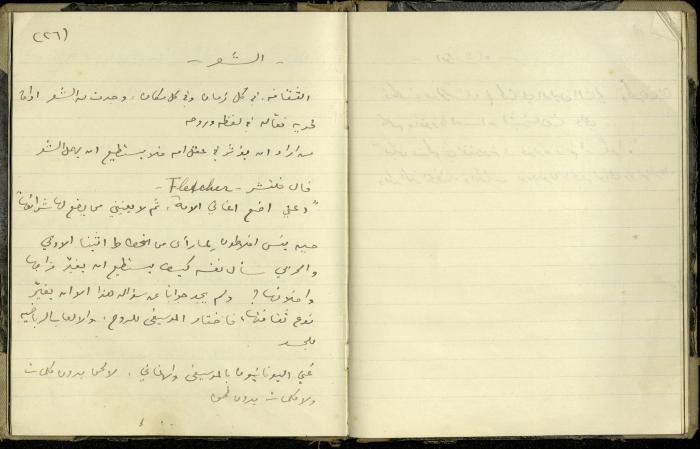 (٢٦)
- الشعر -
الثقافة، في كل زمان وفي كل مكان، وجدت من الشعر اداة
قوية فعالة في لفظه وروحه
من اراد ان يؤثر في عقل امة فلا يستطيع ان يهمل الشعر
قال فلتشر - Fletcher -
"دعني اضع اغاني الامة، ثم لا يعنيني من يضع لها شرائعها"
حين يئس افلاطون لما رأى من انحطاط اثينا الادبي
والحربي سأل نفسه كيف يستطيع ان يغير مزاجها
واخلاقها؟ ولم يجد جوابا عن سؤاله هذا الا ان يغير
نوع ثقافتها، فاختار الموسيقى للروح، والالعاب الرياضيه
للجسد
عُني اليونانيون بالموسيقى والاغاني. لا لحن بدون كلمات
ولا كلمات بدون لحن